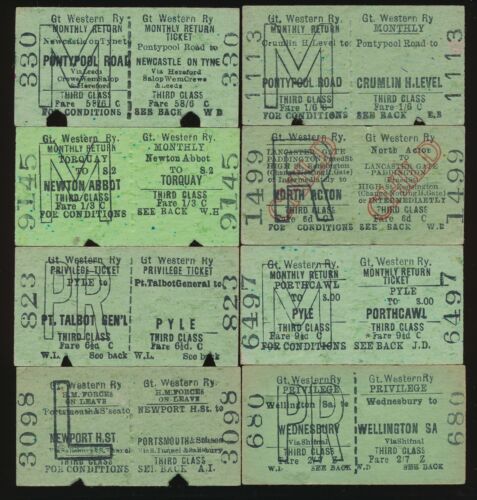 330
Gt. Western Ry
MONTHLY RETURN
Newcastle on Tyne to
PONTYPOOL ROAD
Via Leeds
Crewe Wem Salop
& Hereford
THIRD CLASS
Fare 58/6 C
FOR CONDITIONS
M
Gt. Western Ry
MONTHLY RETURN
TICKET
Pontypool Road to
NEWCASTLE ON TYNE
Via Hereford
Salop Wem Crewe
& Leeds
THIRD CLASS
Fare 58/6 C
SEE BACK W D
330
1113
Gt. Western Ry
Crumlin H. Level to
PONTYPOOL ROAD
THIRD CLASS
Fare 1/6 C
FOR CONDITIONS
M
Gt. Western Ry
MONTHLY
Pontypool Road to
CRUMLIN H. LEVEL
THIRD CLASS
Fare 1/6 C
SEE BACK
1113
9145
Gt. Western Ry.
MONTHLY RETURN
TORQUAY
TO S.2
NEWTON ABBOT
THIRD CLASS
Fare 1/3 C
FOR CONDITIONS
M
Gt. Western Ry.
MONTHLY
Newton Abbot
TO S.2
TORQUAY
THIRD CLASS
Fare 1/3 C
SEE BACK W.H
9145
1499
Gt. Western Ry
LANCASTER GATE
NORTH ACTON
THIRD CLASS
Fare 6d C
FOR CONDITIONS
Gt. Western Ry
North Acton
TO
LANCASTER GATE
or INTERMEDIATELY
THIRD CLASS
Fare 6d C
SEE BACK
1499
823
Gt. Western Ry
PRIVILEGE TICKET
PYLE to
PT. TALBOT GEN'L
THIRD CLASS
Fare 6½d. C
W.L. See back
PR
Gt. Western Ry
PRIVILEGE TICKET
Pt. Talbot General to
PYLE
THIRD CLASS
Fare 6½d. C
W.L. See back
823
6497
Gt. Western Ry
MONTHLY RETURN
PORTHCAWL
TO 3.00
PYLE
THIRD CLASS
Fare 9½d C
FOR CONDITIONS
M
Gt. Western Ry
MONTHLY RETURN
TICKET
PYLE
TO 3.00
PORTHCAWL
THIRD CLASS
Fare 9½d C
SEE BACK J.D.
6497
3098
Gt. Western Ry
H.M. FORCES
ON LEAVE
Portsmouth & S'sea to
NEWPORT H. ST
THIRD CLASS
FOR CONDITIONS
L
Gt. Western Ry
H.M. FORCES
ON LEAVE
NEWPORT H. St. to
PORTSMOUTH & S'sea
Via S. Tunnel & Salisbury
THIRD CLASS
Fare C
SEE BACK A.I.
3098
680
Gt. Western Ry
PRIVILEGE
Wellington Sa. to
WEDNESBURY
Via Shifnal
THIRD CLASS
Fare 2/7 Z
W.D SEE BACK
PR
Gt. Western Ry
PRIVILEGE
Wednesbury to
WELLINGTON SA
Via Shifnal
THIRD CLASS
Fare 2/7 Z
W.D SEE BACK
680